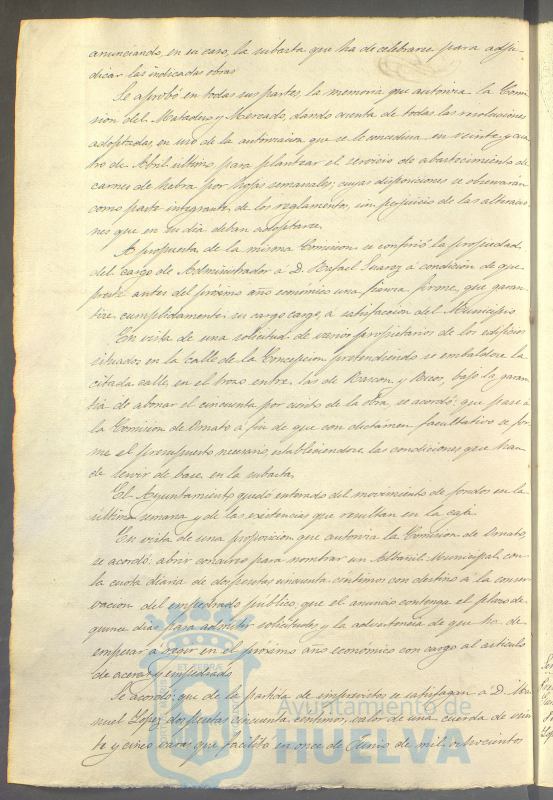 anunciando, en su caso, la subasta que ha de celebrarse para adju-
dicar las indicadas obras
Se aprobó en todas sus partes, la memoria que autoriza la Comi
sion del Matadero y Mercado, dando cuenta de todas las resoluciones
adoptadas, en uso de la autorizacion que se le concediera en veinte y cua
tro de Abril último para plantear el servicio de abastecimiento de
carnes de hebra por hojas semanales; cuyas disposiciones se observarán
como parte integrante de los reglamentos, sin perjuicio de las alteracio
nes que en su dia deban adoptarse.
A propuesta de la misma Comision se confirió la propiedad
del cargo de Administrador á D. Rafael Suarez á condicion de que
preste antes del próximo año económico una fianza firme, que garan
tice cumplidamente su cargo, á satisfaccion del Municipio
En vista de una solicitud de varios propietarios de los edificios
situados en la calle de la Concepcion pretendiendo se embaldose la
citada calle, en el trozo entre las de Rascon y Ricos, bajo la garan
tia de abonar el cincuenta por ciento de la obra, se acordó: que pase á
la Comision de Ornato á fin de que con dictamen facultativo se for
me el presupuesto necesario, estableciendose las condiciones que han
de servir de base en la subasta,
El Ayuntamiento quedó enterado del movimiento de fondos en la
última semana y de las existencias que resultan en la caja
En vista de una proposicion que autoriza la Comision de Ornato,
se acordó: abrir concurso para nombrar un Albañil Municipal con
la cuota diaria de dos pesetas cincuenta centimos con destino á la conser
vacion del empedrado público; que el anuncio contenga el plazo de
quince dias para admitir solicitudes y la advertencia de que ha de
empezar á regir en el próximo año económico con cargo al articulo
de aceras y empedrado
Se acordó: que de la partida de imprevistos se satisfagan á D. Ma
nuel Lopez dos pesetas cincuenta centimos, valor de una cuerda de vein
te y cinco varas que facilitó en once de Junio de mil ochocientos
Ayuntamiento de
HUELVA